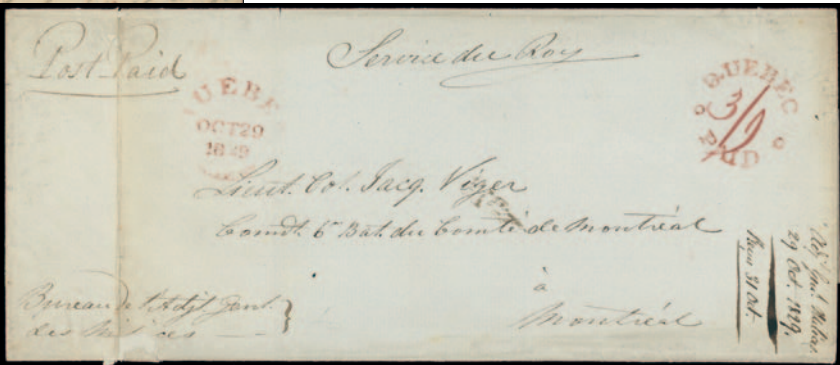 Post Paid
Service du Roy
QUEBEC
OCT 29
1829
QUEBEC
3/9
PAID
Lieut. Col. Jacq. Viger
Comdt. 6e Bat. du Comté de Montréal
à
Montréal
Bureau de l'Adjt. Genl.
des Milices
Adj. Genl. Milices
29 Oct. 1829.
31 Oct.